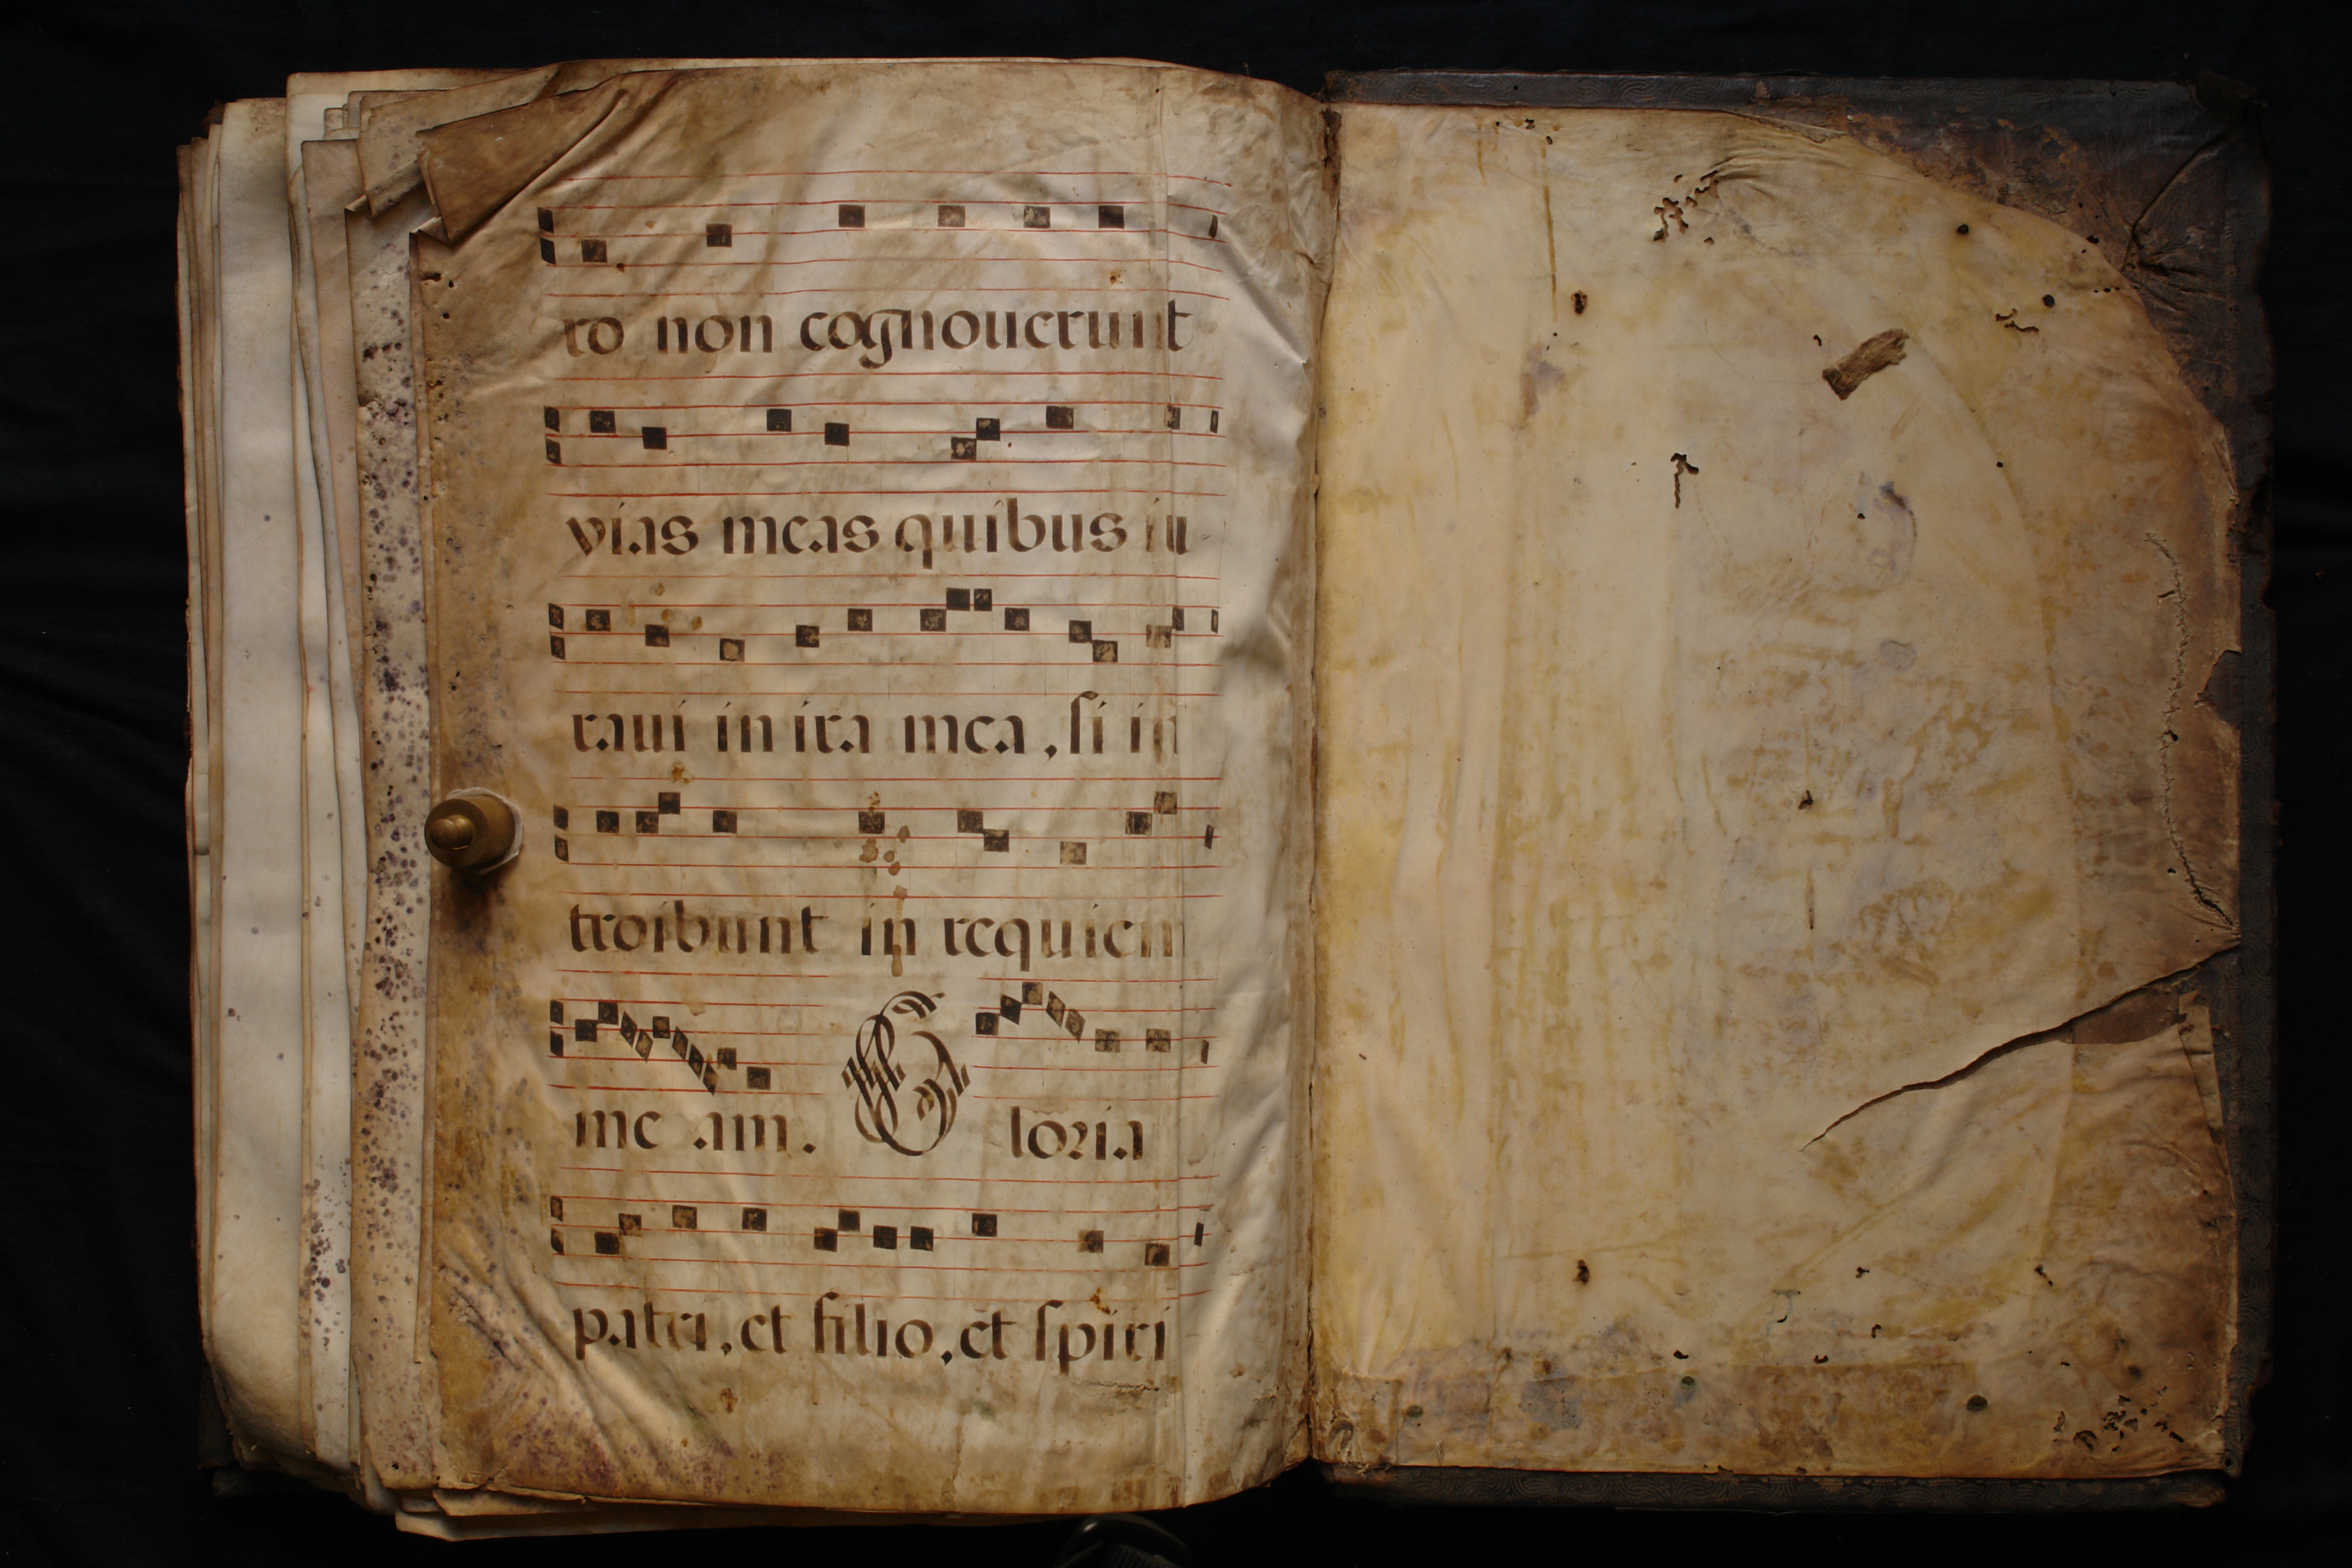 ro non cognouerunt
vias meas quibus iu
raui in ira mea, si in
troibunt in requiem
me am. Gloria
patri, et filio, et spiri